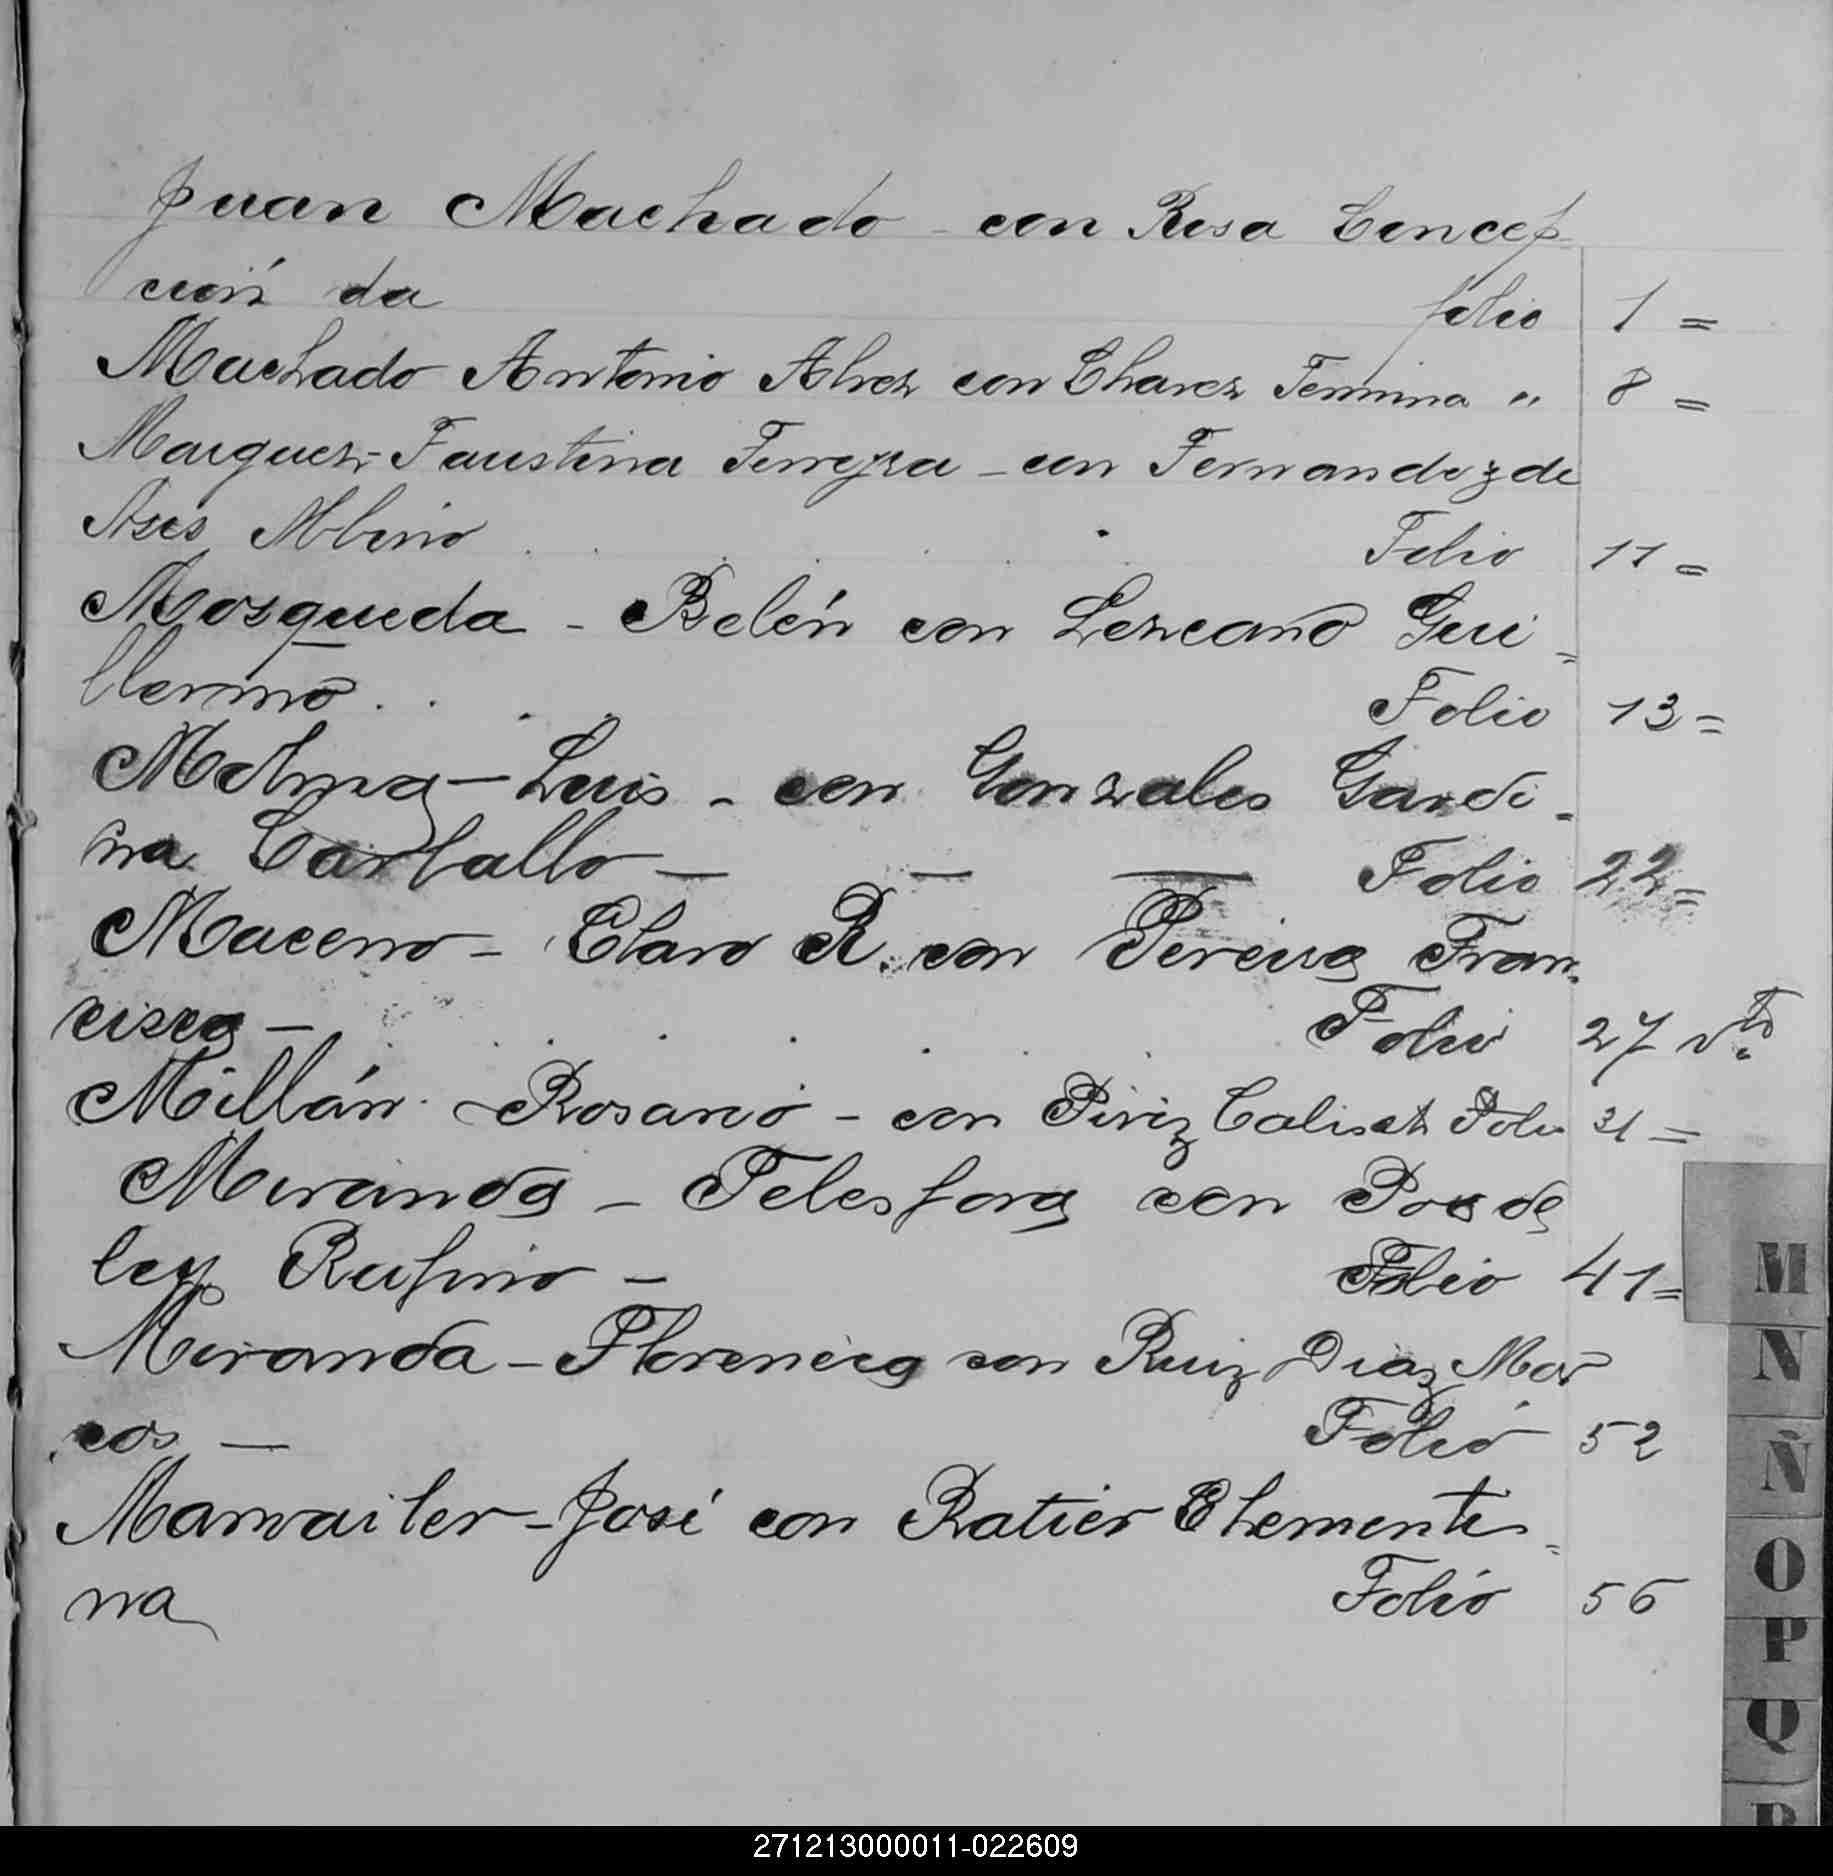 Juan Machado - con Rosa Concep-
ción da folio 1 =
Machado Antonio Alvez con Chavez Fermina " 8 =
Marquez - Faustina Ferreyra - con Fernandez de
Ases Albino . . . . Folio 11 =
Mosqueda - Belén con Lezcano Gui=
llermo . . . . Folio 13 =
Molina - Luis - con Gonzales Gardi-
na Carballo — — — Folio 22 =
Maceno - Claro R. con Pereira Fran-
cisca — . . . . Folio 27 vto
Millán - Rosario - con Piriz Calixto Folio 31 =
Miranda - Telesfora con Posde
ley Rufino — Folio 41 =
Miranda - Florencia con Ruiz Diaz Mar
cos — Folio 52
Manvailer - José con Ratier Clementi=
na Folio 56
M
N
Ñ
O
P
Q
R
271213000011-022609